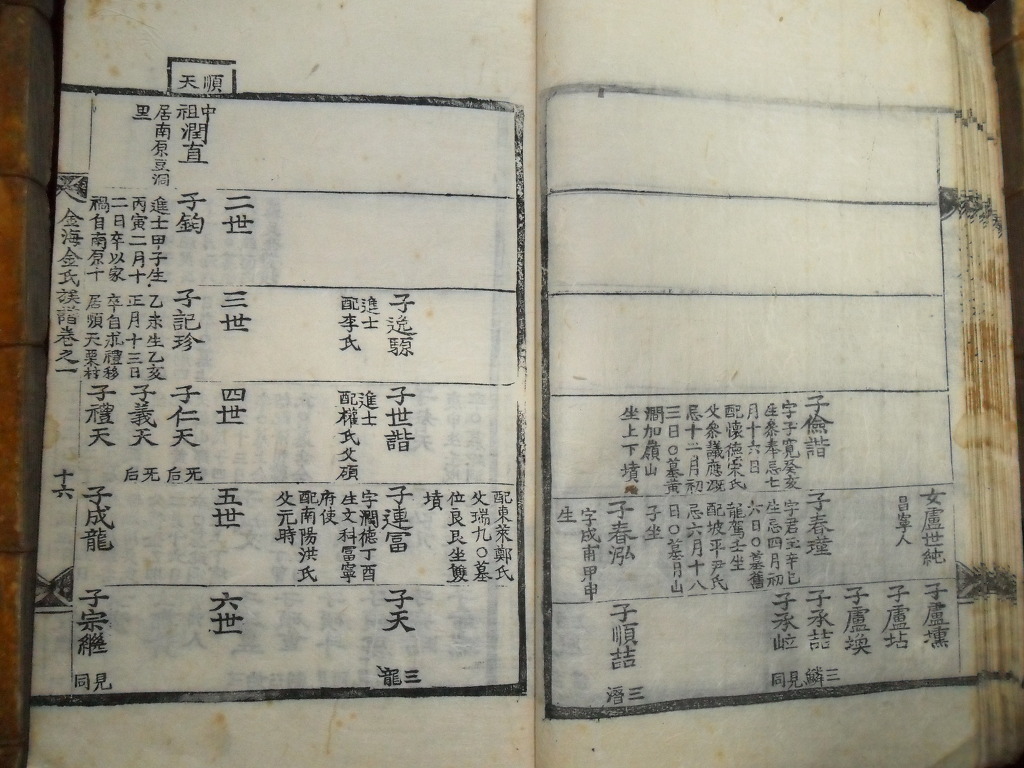 子儉諧
字子寬癸亥
生參奉忌七
月十六日
配懷德宋氏
父衆議應漑
忌十二月初
三日〇墓黃
澗加嶺山
坐上下墳
女盧世純
昌寧人
子春瑾
字君玉辛巳
生忌四月初
六日〇墓舊
龍駕壬坐
配坡平尹氏
忌六月十八
日〇墓月山
子坐
子春泓
字成甫甲申
生
子盧壎
子盧坫
子盧
子承喆
三鱗
子承岦
見同
子順喆
三潛
順天
中祖潤直
居南原豆洞
里
二世
子鈞
進士甲子生
丙寅二月十
二日卒以家
禍自南原干
子逸驟
進士
配李氏
三世
子記珍
乙未生乙亥
正月十三日
卒自求禮移
居順天栗村
子世諧
進士
配權氏父碩
四世
子仁天
无后
子義天
无后
子禮天
配東萊鄭氏
父瑞九〇墓
位良艮坐雙
墳
子連富
字潤德丁酉
生文科富寧
府使
配南陽洪氏
父元時
五世
子成龍
子天
三龍
六世
子宗繼
見同
金海金氏族譜卷之一
十六